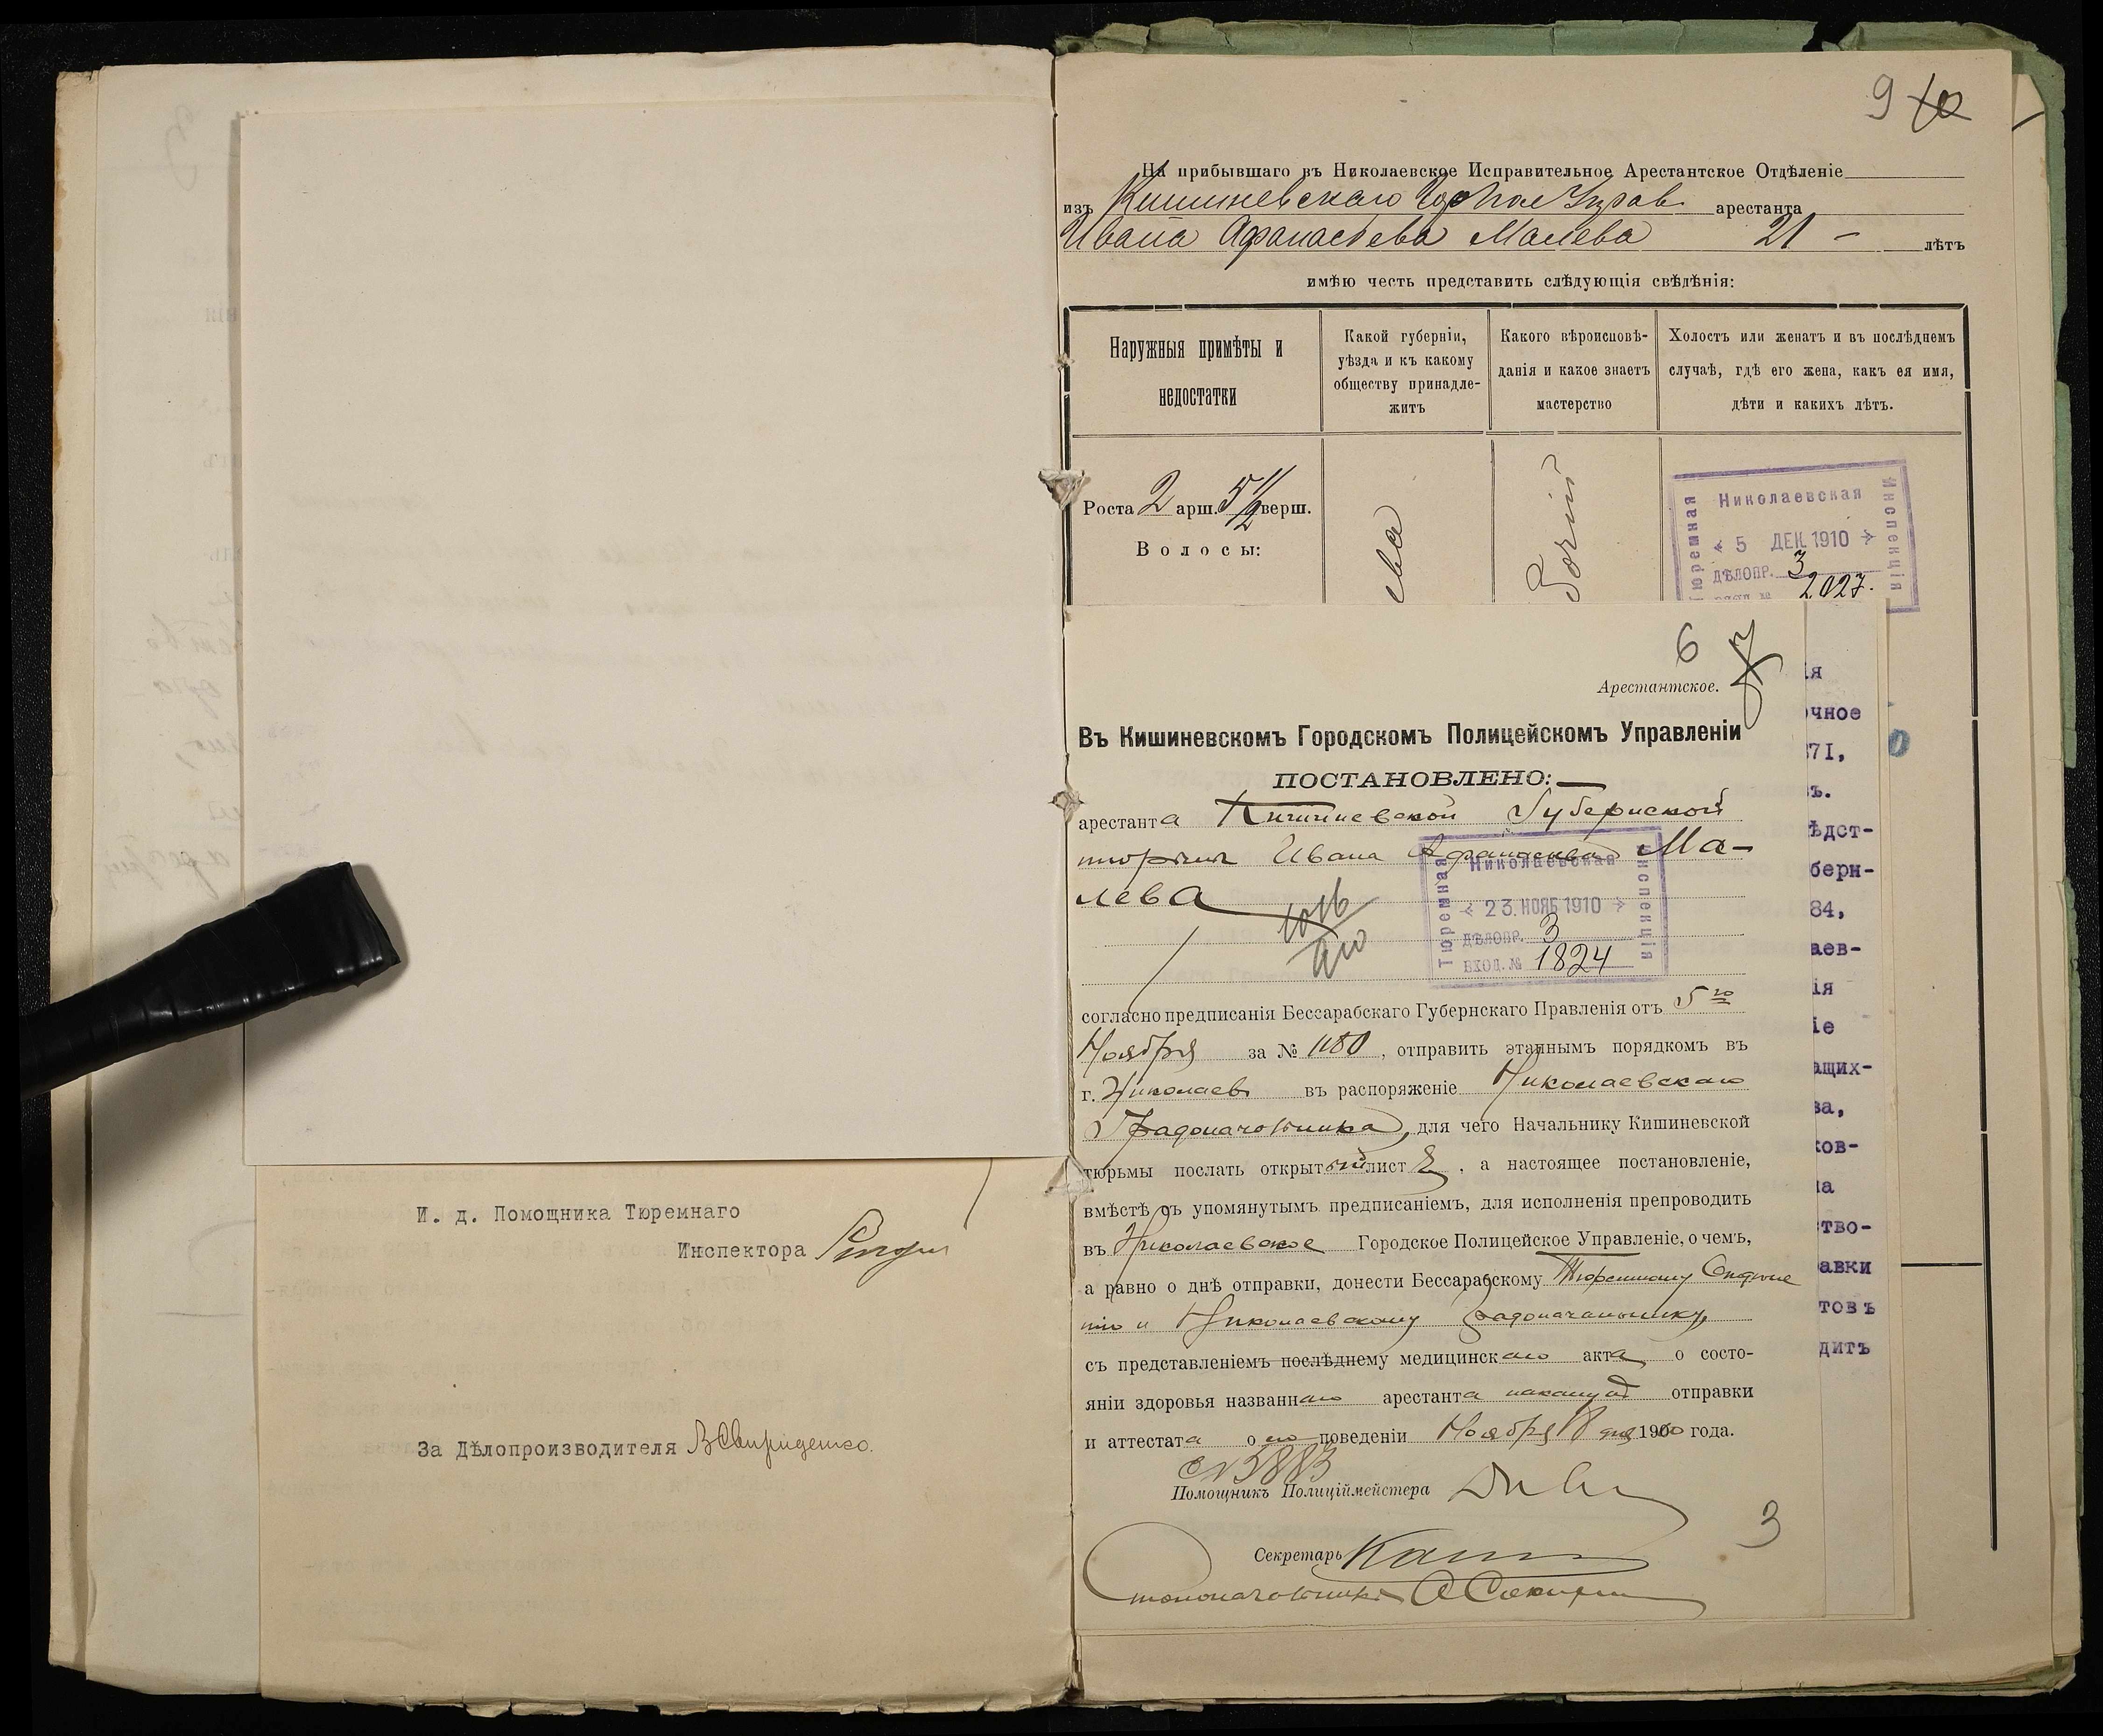 И. д. Помощника Тюремнаго
Инспектора
За Дѣлопроизводителя ВСвириденко.
9 10
На прибывшаго въ Николаевское Исправительное Арестантское Отдѣленіе
изъ Кишиневскаго Гор Пол Управ. арестанта
Ивана Афанасьева Малева 21 - лѣтъ
имѣю честь представить слѣдующія свѣдѣнія:
Наружныя примѣты и
недостатки
Какой губерніи,
уѣзда и къ какому
обществу принадле-
житъ
Какого вѣроисповѣ-
данія и какое знаетъ
мастерство
Холостъ или женатъ и въ послѣднемъ
случаѣ, гдѣ его жена, какъ ея имя,
дѣти и какихъ лѣтъ.
Роста 2 арш. 5 1/2 верш.
Волосы:
Николаевская
Тюремная
Инспекція
5 ДЕК 1910
ДѢЛОПР. 3
2027.
6 7
Арестантское.
Въ Кишиневскомъ Городскомъ Полицейскомъ Управленіи
ПОСТАНОВЛЕНО:
арестанта Кишиневской Губернской
тюрьмы Ивана Афанасьева Ма-
лева
Николаевская
Тюремная
Инспекція
23. НОЯБ 1910
ДѢЛОПР. 3
ВХОД. № 1824
согласно предписанія Бессарабскаго Губернскаго Правленія отъ 5го
Ноября за № 1180, отправить этапнымъ порядкомъ въ
г. Николаевъ въ распоряженіе Николаевскаго
Градоначальника, для чего Начальнику Кишиневской
тюрьмы послать открытый лист, а настоящее постановленіе,
вмѣстѣ съ упомянутымъ предписаніемъ, для исполненія препроводить
въ Николаевское Городское Полицейское Управленіе, о чемъ,
а равно о днѣ отправки, донести Бессарабскому Тюремному Отдѣле
нію и Николаевскому Градоначальнику,
съ представленіемъ послѣднему медицинскаго акта о состо-
яніи здоровья названнаго арестанта накануне отправки
и аттестата о его поведеніи Ноября 8 дня 1910 года.
№ 3883
Помощникъ Полиціймейстера
Секретарь
Столоначальникъ
3
ія
очное
71,
ъ.
ѣдст-
берн-
84,
аев-
ія
іе
ащих-
ва,
ков-
а
ство-
авки
товъ
дитъ